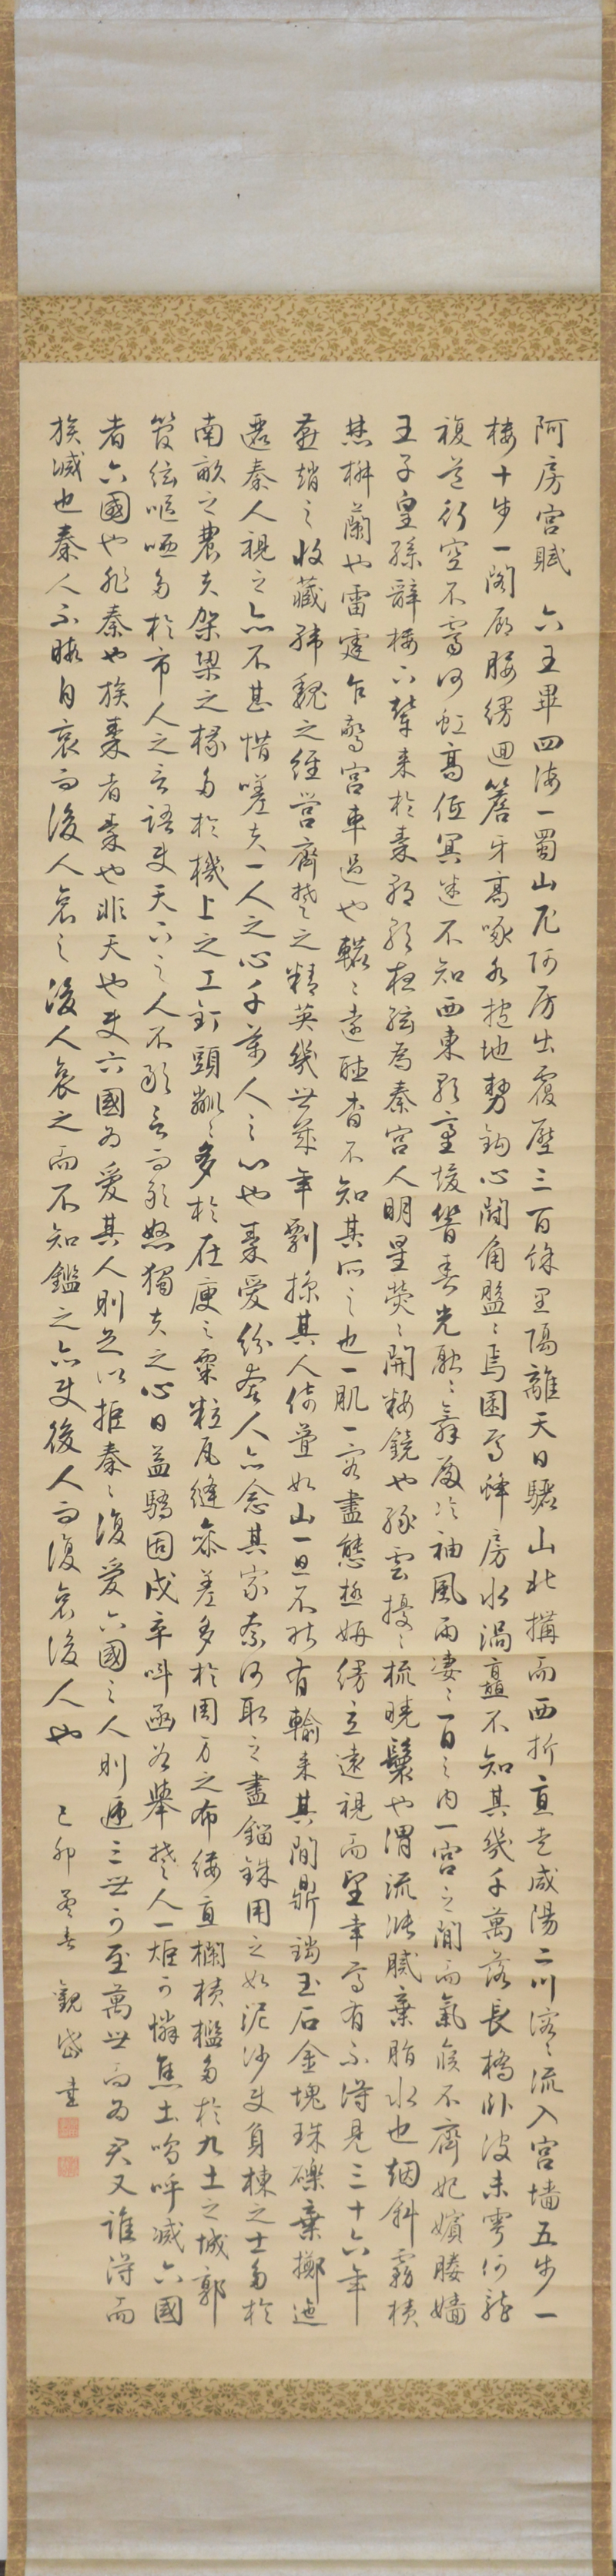 阿房宮賦 六王畢四海一蜀山兀阿房出覆壓三百餘里隔離天日驪山北搆而西折直走咸陽二川溶〻流入宮墻五步一
樓十步一閣廊腰縵迴簷牙高啄各抱地勢鈎心鬪角盤〻焉囷〻焉蜂房水渦矗不知其幾千萬落長橋臥波未雩何龍
複道行空不霽何虹高低冥迷不知西東歌臺暖響春光融〻舞殿冷袖風雨凄〻一日之內一宮之間而氣候不齊妃嬪媵嬙
王子皇孫辭樓下輦來於秦朝歌夜絃為秦宮人明星熒〻開粧鏡也綠雲擾〻梳曉鬟也渭流漲膩棄脂水也烟斜霧橫
焚椒蘭也雷霆乍驚宮車過也轆〻遠聽杳不知其所之也一肌一容盡態極妍縵立遠視而望幸焉有不得見三十六年
燕趙之收藏韓魏之經營齊楚之精英幾世幾年剽掠其人倚疊如山一旦不能有輸來其間鼎鐺玉石金塊珠礫棄擲邐
迤秦人視之亦不甚惜嗟夫一人之心千萬人之心也秦愛紛奢人亦念其家奈何取之盡錙銖用之如泥沙使負棟之士多於
南畝之農夫架梁之椽多於機上之工釘頭粼〻多於在庾之粟粒瓦縫參差多於周身之布縷直欄橫檻多於九土之城郭
管絃嘔啞多於市人之言語使天下之人不敢言而敢怒獨夫之心日益驕固戍卒叫函谷舉楚人一炬可憐焦土嗚呼滅六國
者六國也非秦也族秦者秦也非天也使六國各愛其人則足以拒秦〻復愛六國之人則遞三世可至萬世而為君又誰得而
族滅也秦人不暇自哀而後人哀之後人哀之而不知鑑之亦使後人而復哀後人也 己卯 觀岱書